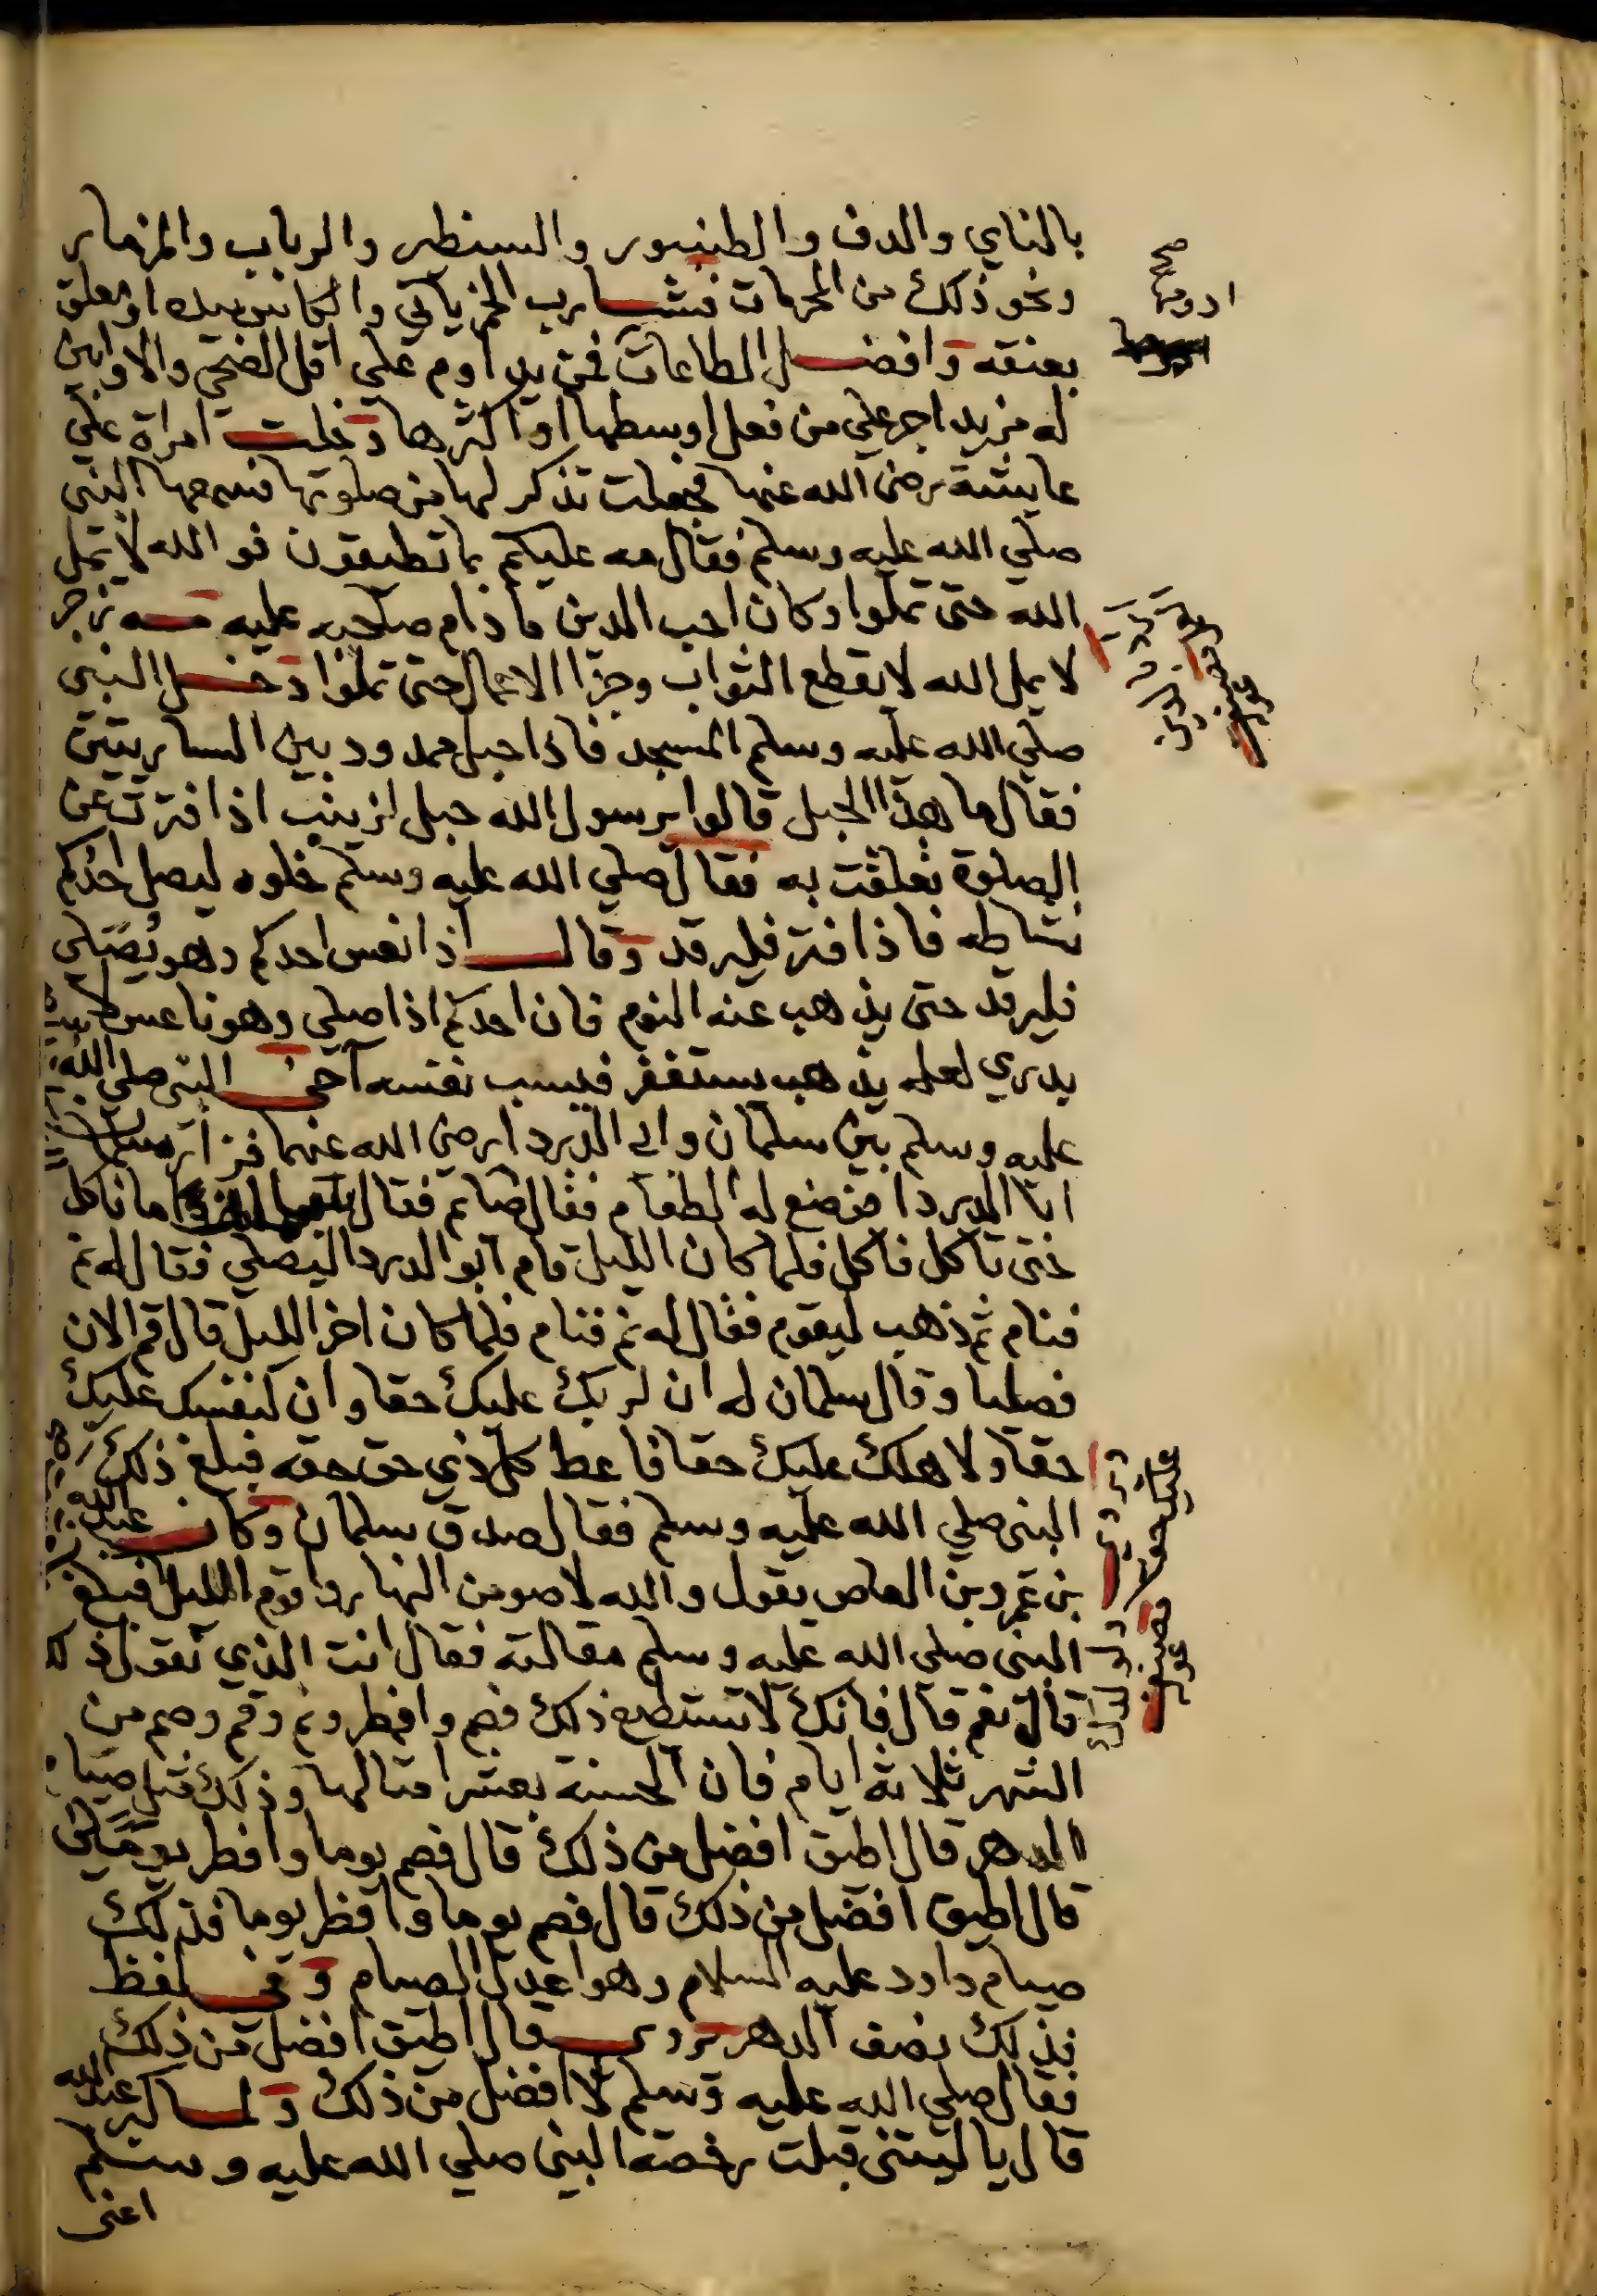 بالناي والدف والطنبور والسنطر والرباب والمزمار
ونحو ذلك من المحرمات فشارب الخمر ياتي والكاس بيده او معلق
بعنقه وافضل الطاعات فمن يداوم علي اقل الضحي والاوابين
له مزيد اجر علي من فعل اوسطها او اكثرها دخلت امراة علي
عايشة رضي الله عنها فجعلت تذكر لها من صلوتها فسمعها النبي
صلي الله عليه وسلم فقال مه عليكم بما تطيقون فو الله لا يمل
الله حتى تملوا وكان احب الدين ما دام صاحبه عليه مه زجر
لا يمل الله لا يقطع الثواب وجزا الاعمال حتى تملوا دخل النبي
صلي الله عليه وسلم المسجد فاذا حبل ممدود بين الساريتين
فقال ما هذا الحبل قالوا يرسول الله حبل لزينب اذا فترت عن
الصلوة تعلقت به فقال صلي الله عليه وسلم خلوه ليصل احدكم
نشاطه فاذا فتر فليرقد وقال اذا نعس احدكم وهو يصلي
فليرقد حتى يذهب عنه النوم فان احدكم اذا صلي وهو ناعس لا
يدري لعله يذهب يستغفر فيسب نفسه آخى النبي صلي الله
عليه وسلم بين سلمان وابي الدردا رضي الله عنهما فزار سلمان
ابا الدردا فصنع له الطعام فقال صايم فقال ما ناكل
حتى تاكل فاكل فلما كان الليل قام ابو الدردا ليصلي فقال له نم
فنام ثم ذهب ليقوم فقال له نم فنام فلما كان اخر الليل قال قم الان
فصليا وقال سلمان له ان لربك عليك حقا وان لنفسك عليك
حقا ولاهلك عليك حقا فاعط كل ذي حق حقه فبلغ ذلك
النبي صلي الله عليه وسلم فقال صدق سلمان وكان عبد الله
بن عمرو بن العاص يقول والله لاصومن النهار واقوم الليل فبلغ
النبي صلي الله عليه وسلم مقالته فقال انت الذي تقول ذلك
قال نعم قال فانك لا تستطيع ذلك فصم وافطر ونم وقم وصم من
الشهر ثلاثة ايام فان الحسنة بعشر امثالها وذلك مثل صيام
الدهر قال اطيق افضل من ذلك قال فصم يوما وافطر يومين
قال اطيق افضل من ذلك قال فصم يوما وافطر يوما فذلك
صيام داود عليه السلام وهو اعدل الصيام وفي لفظ
فذلك نصف الدهر قال اطيق افضل من ذلك
فقال صلي الله عليه وسلم لا افضل من ذلك ولما كبر عبد الله
قال يا ليتني قبلت رخصة النبي صلي الله عليه وسلم
اعني
صح
ادومها